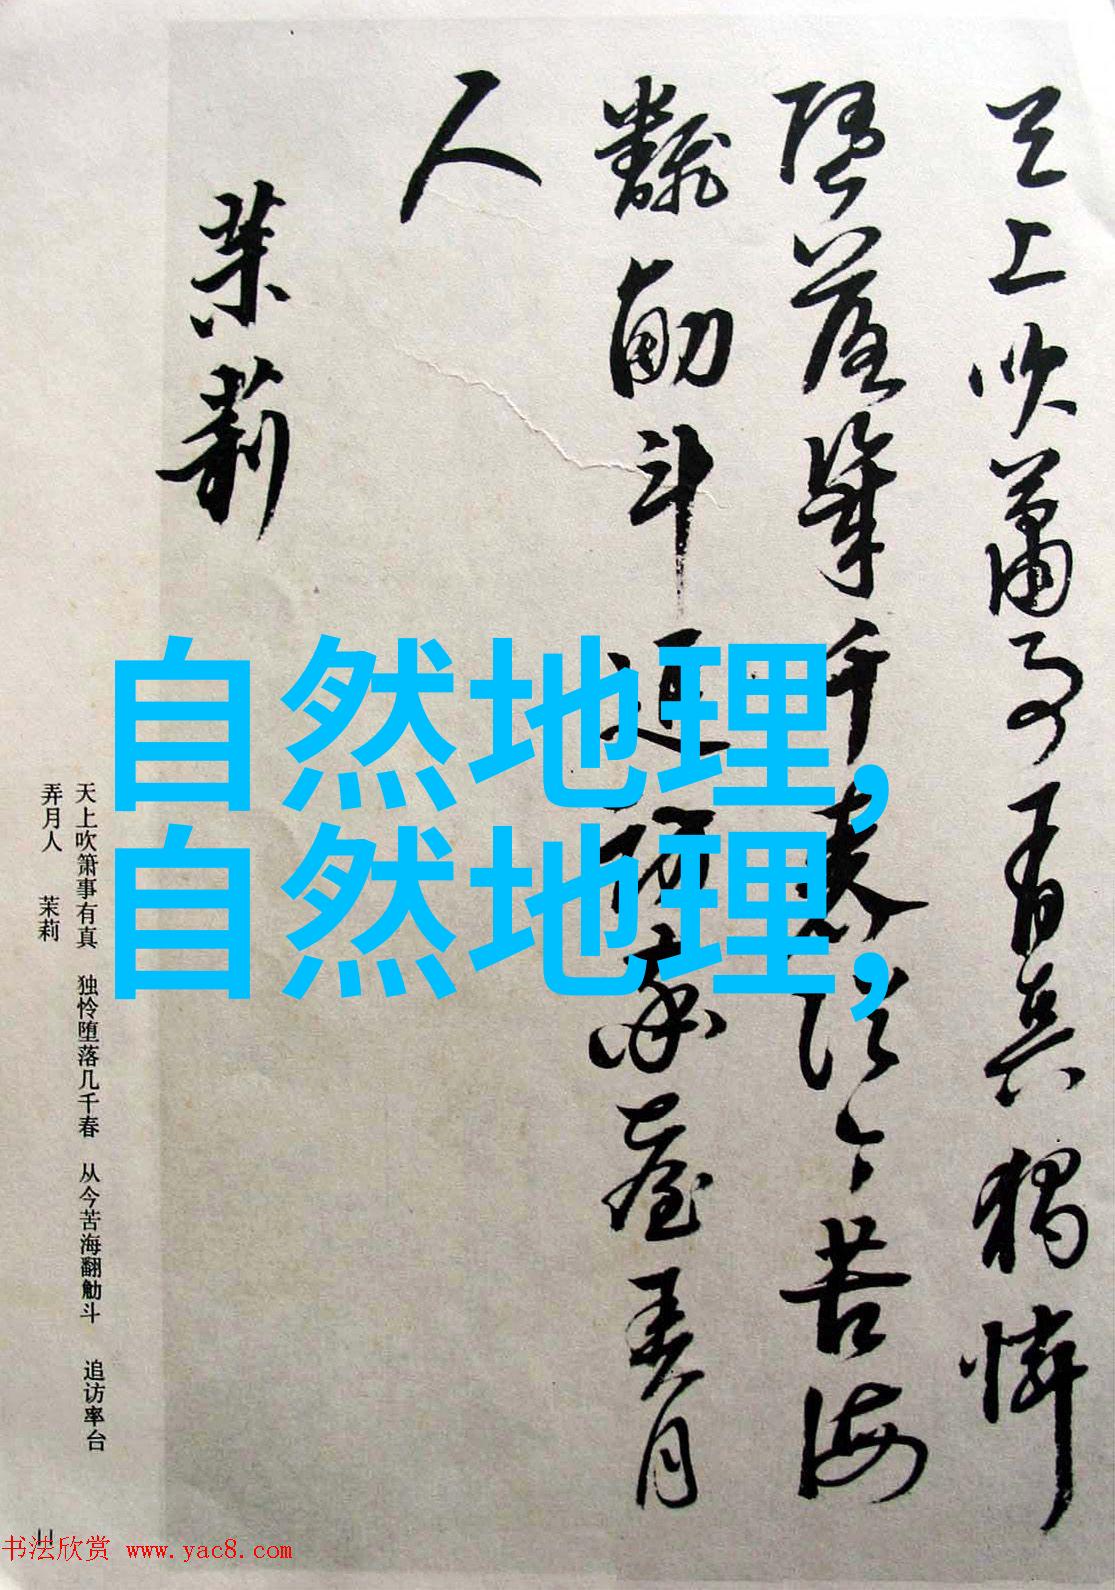 天上吹箫事有真独怜
堕落几千春从今苦海
翻觔斗追访率台弄月
人
茉莉
自然地理,
自然地理,
天上吹箫事有真 独怜堕落几千春 从今苦海翻觔斗 追访率台
弄月人 茉莉
11
书法欣赏 www.yac8.com